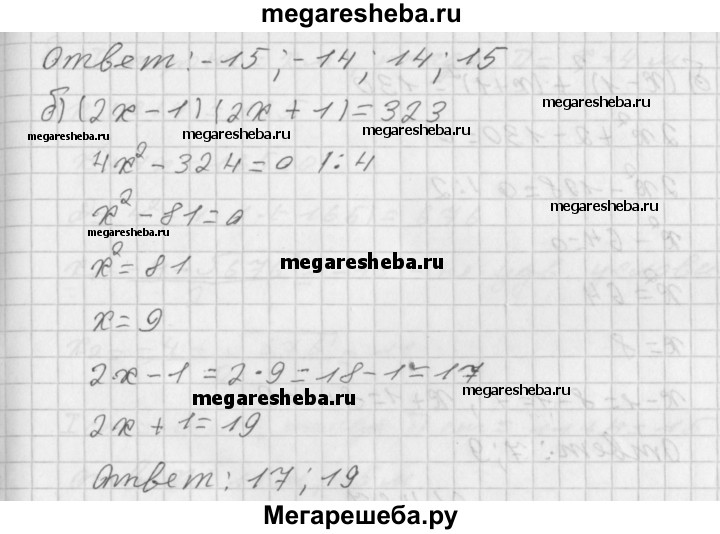 megaresheba.ru
Ответ: -15; -14; 14; 15
б) (2x - 1)(2x + 1) = 323
megaresheba.ru
megaresheba.ru megaresheba.ru megaresheba.ru
4x² - 324 = 0 1:4
x² - 81 = 0
megaresheba.ru
megaresheba.ru
x² = 81
megaresheba.ru
x = 9
2·x - 1 = 2·9 = 18 - 1 = 17
megaresheba.ru
megaresheba.ru
2x + 1 = 19
Ответ: 17; 19
Мегарешеба.ру